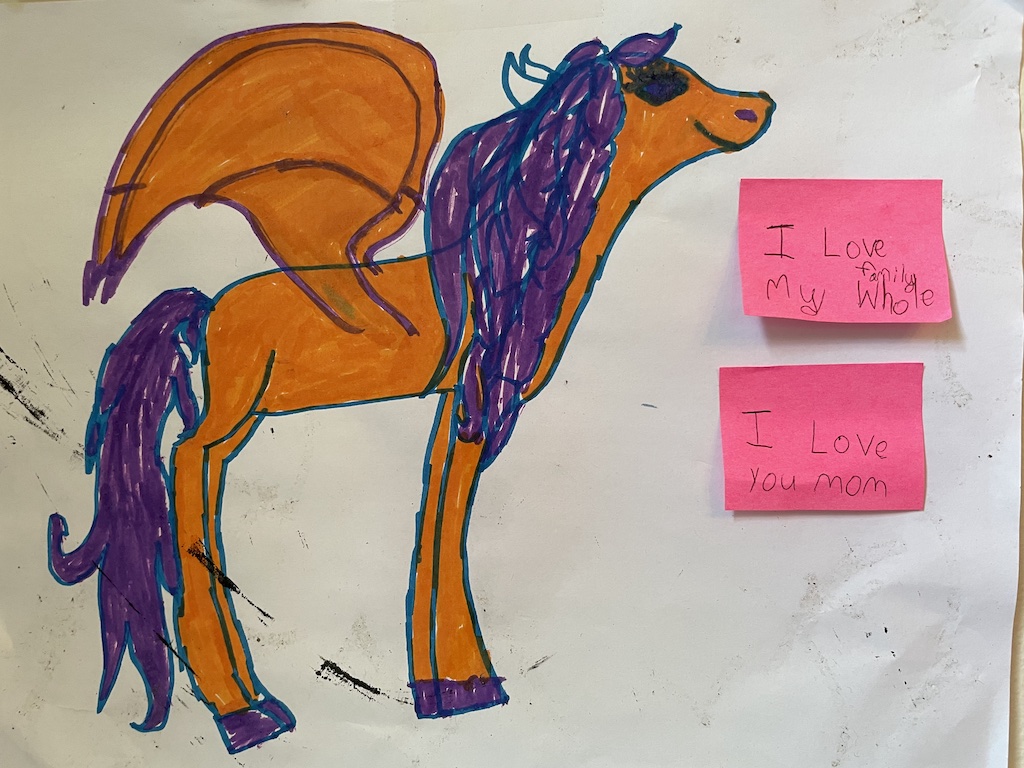 I Love
My Whole family
I Love
you mom